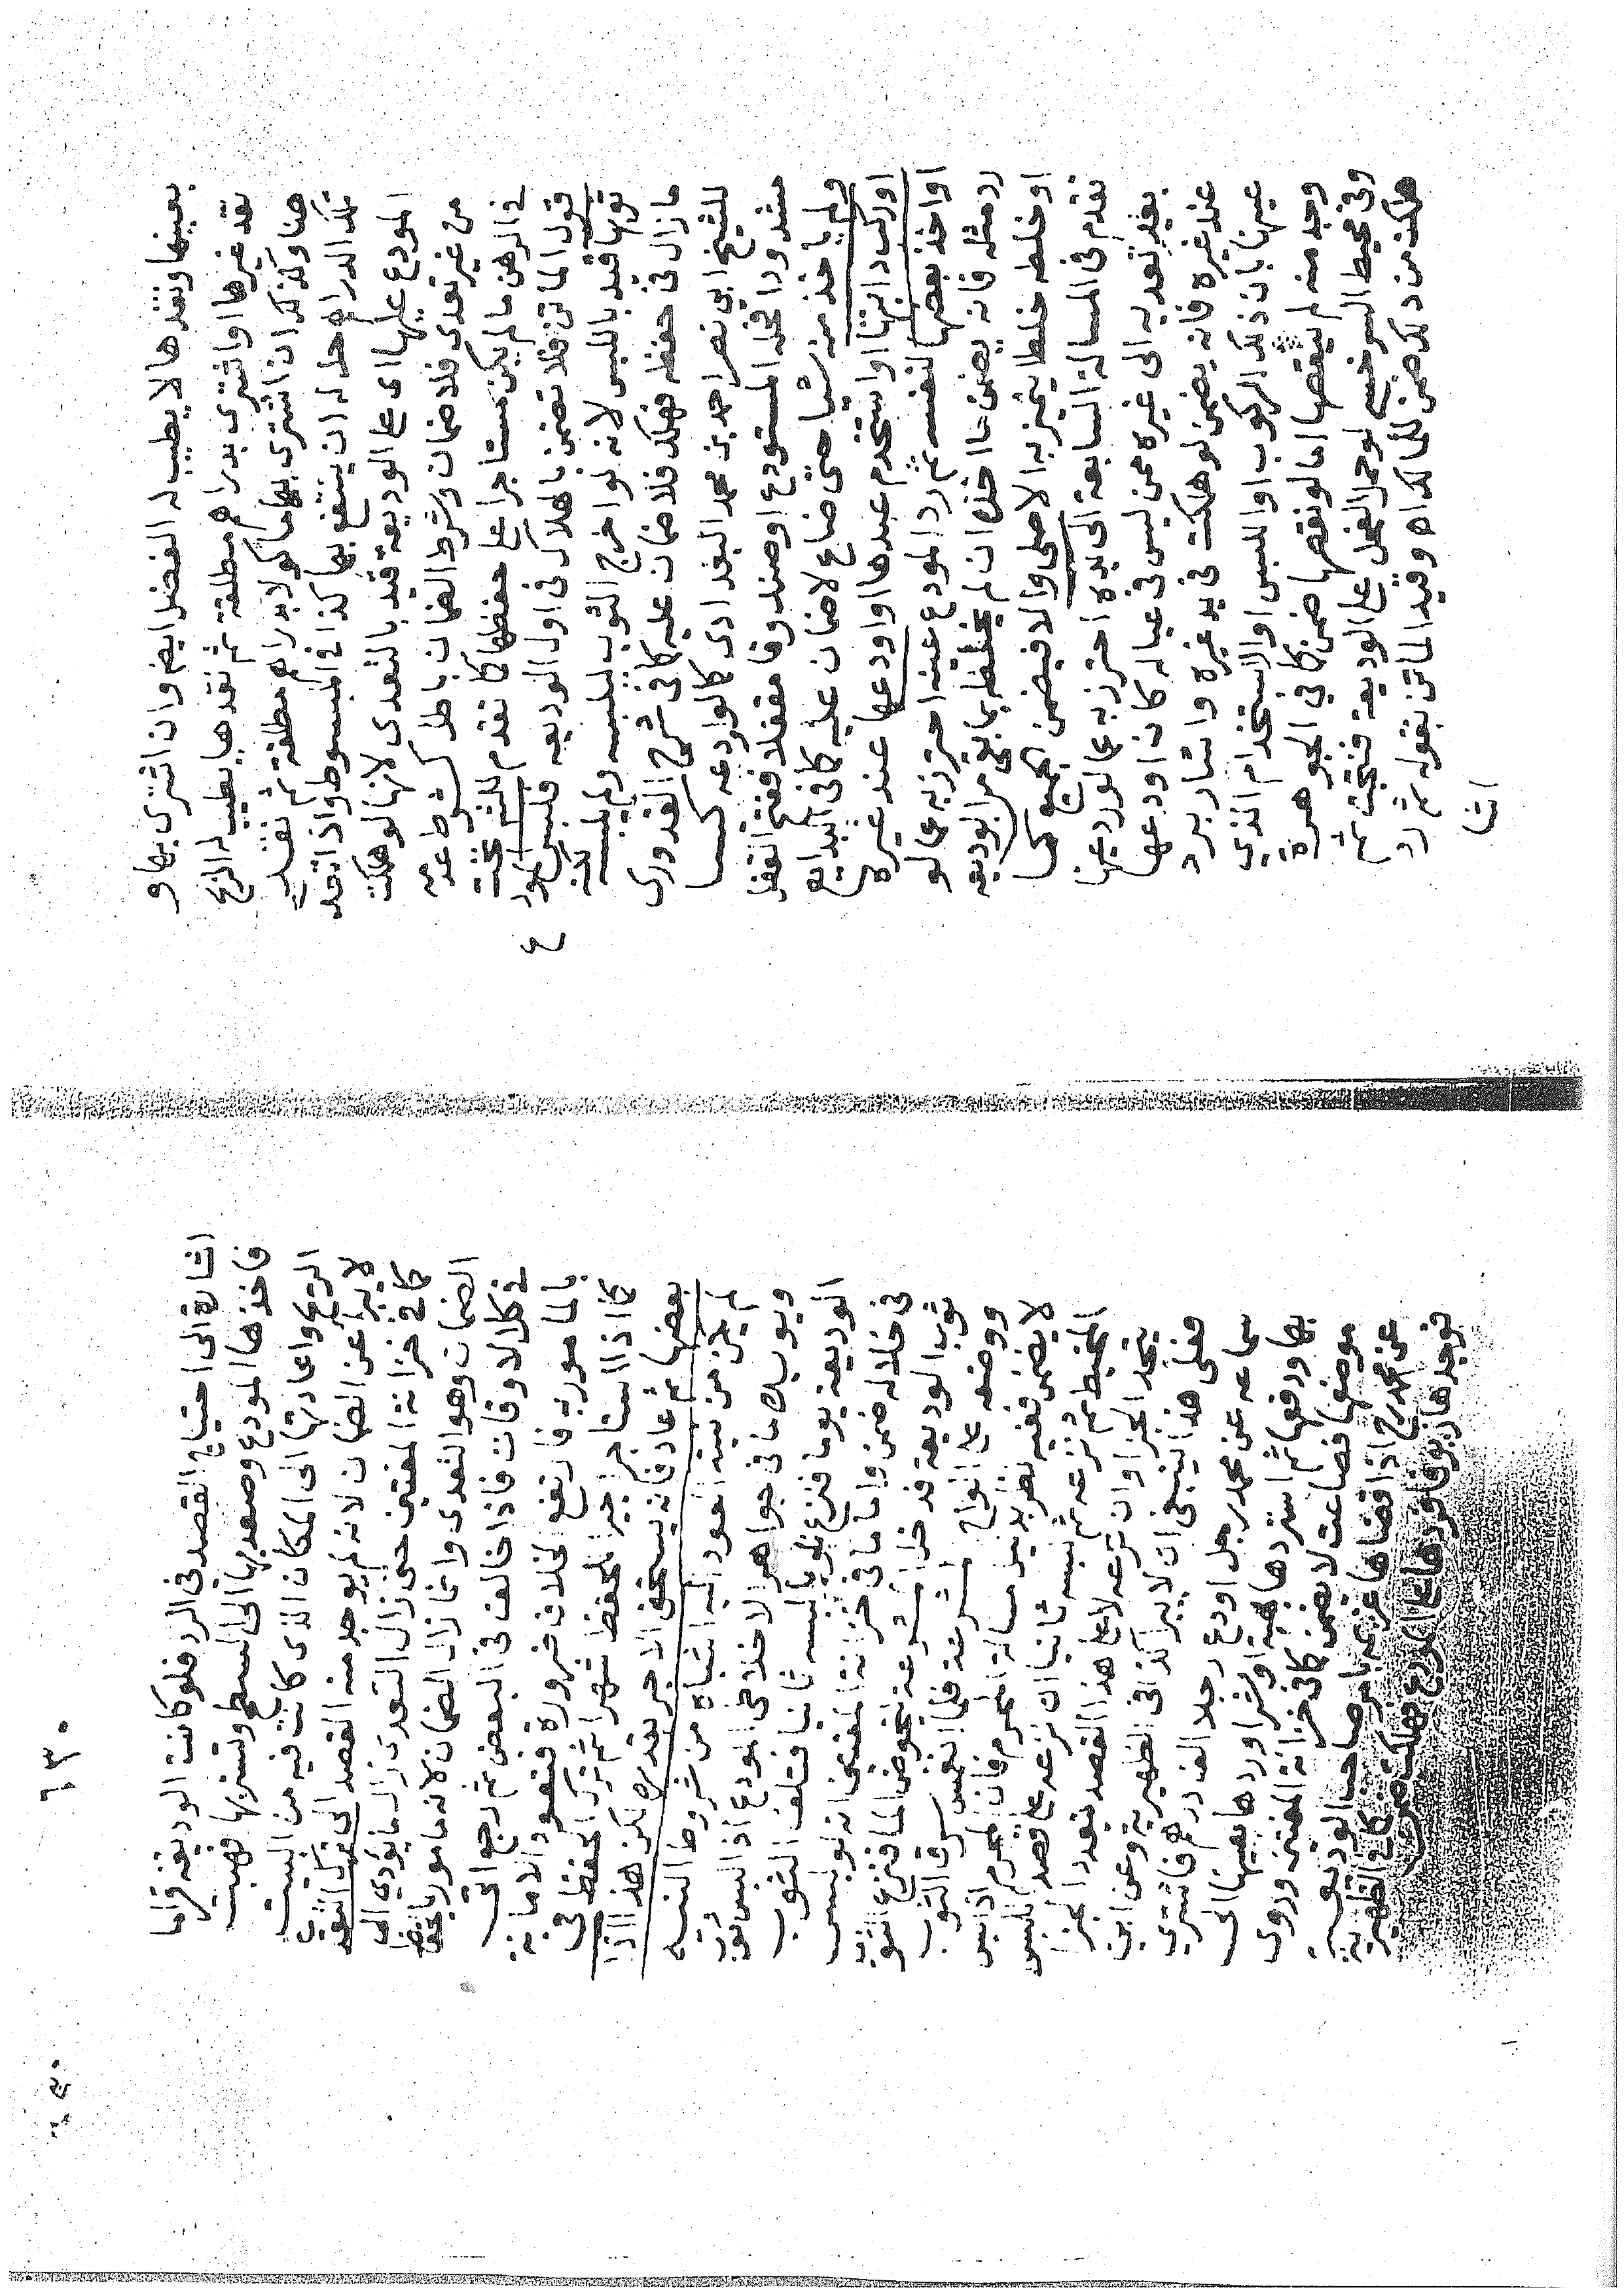 بعينها ونقدها لا يطيب له الفضل ايضا وان اشترى بها و
نقد غيرها او اشترى بدراهم مطلقة ثم نقدها يطيب له الربح
هنا وكذلك ان اشترى بها ماكولا بدراهم مطلقة ثم نقد
تلك الدراهم حل له ان ينتفع بها كذا في المبسوط واذا تعد
المودع عليها اى على الوديعة قيد بالتعدى لانها لو هلكت
من غير تعدى فلا ضمان وشرط الضمان باطل كشرط عدمه
في الرهن ما لم يكن مستاجرا على حفظها كما تقدم
قول الماتن فلا تضمن بالهلاك في اول الوديعه فلبس
ثوبها قيد باللبس لانه لو اخرج الثوب ليلبسه ولم يلبسه
ما زال في حفظه فهلك فلا ضمان عليه كما في شرح القدورى
للشيخ ابي نصر احمد بن محمد البغدادى كما لو اودعه كيسا
مشدودا فحله المستودع او صندوقا مقفلا ففتح القفل
ولم ياخذ منه شيا حتى ضاع لا ضمان عليه كما في البدايع
او ركب دابتها او استخدم عبدها او اودعها عند غيره
او اخذ بعضها لنفسه ثم رد المودع عينه احترز به عما لو
رد مثله فانه يضمن ما اخذه ان لم يختلط بما بقى من الوديعه
او خلطه خلطا يتميز به الاصلى والا فيضمن الجميع كما
تقدم في المسالة السابعة الى يده احترز به عما لو رد عينها
بعد تعديه الى غيره ممن ليس في عياله كان اودعها
عند غيره فانه يضمن لو هلكت في يد غيره واشار برد
عينها بان ذلك الركوب او اللبس او الاستخدام الذي
وجد منه لم ينقصها اما لو نقصها ضمن كما في الجوهرة
وفي محيط السرخسي لو حمل الفحل على الوديعة فنتجت ثم
هلكت من ذلك ضمن للمالك اه وقيد الماتن بقوله ثم رد
اشا
١٣٠
اشارة الى احتياج القصد في الرد فلو كانت الوديعة فراما
فاخذها المودع وصعد بها الى السطح وتستر بها فهبت
الريح واعادتها الى المكان الذى كانت فيه من البيت
لا يبرا عن الضمان لانه لم يوجد منه القصد الى ترك التعد
كما في خزانة المفتين حتى زال التعدى زال ما يؤدي الى
الضمان وهو التعدى وانما زال الضمان لانه مامور بالحفظ
في كل الاوقات فاذا خالف في البعض ثم رجع اتى
بالمامور به فارتفع الخلاف ضرورة فتعود الامانة
كما اذا استاجر اجيرا للحفظ شهرا ثم ترك الحفظ في
بعضها ثم عاد فانه يستحق الاجر بقدره لكن هذا اذا
لم يكن من نيته العود اليه اشباه من شروط النيه
ويويده ما في جواهر الاخلاطى المودع اذا لبس ثوب
الوديعة يوما فنزع ثم لبسه ثانيا فتلف الثوب
في خلاله ضمن واما ما في خزانة المفتين انه لو لبس
ثوب الوديعة فدخل مشرعة ليخوض الما فنزع الثوب
ووضعه على الواح المشرعة فلما انغمس سرق الثوب
لا يضمن ففيه نظر بدليل مسالة المحرم فان المحرم اذا لبس
المخيط ثم نزعه ثم لبسه ثانيا ان نزعه على قصد اللبس
يتحد الجزا وان نزعه لا على هذا القصد يتعدد الجزا
فعلى هذا ينبغى ان لا يبرا كذا في الظهيرية وعن ابن
سماعه عن محمد رجل اودع رجلا الف درهم فاشترى
بها ودفعها ثم استردها بهبة او شرا وردها بعينها الى
موضعها فضاعت لا يضمن كما في خزانة المفتين وروى
عن محمد رح اذا قضاها غريمه بامر صاحب الوديعه
فوجدها زيوفا فردها على المودع فهلكت ضمن كما في الظهيرية